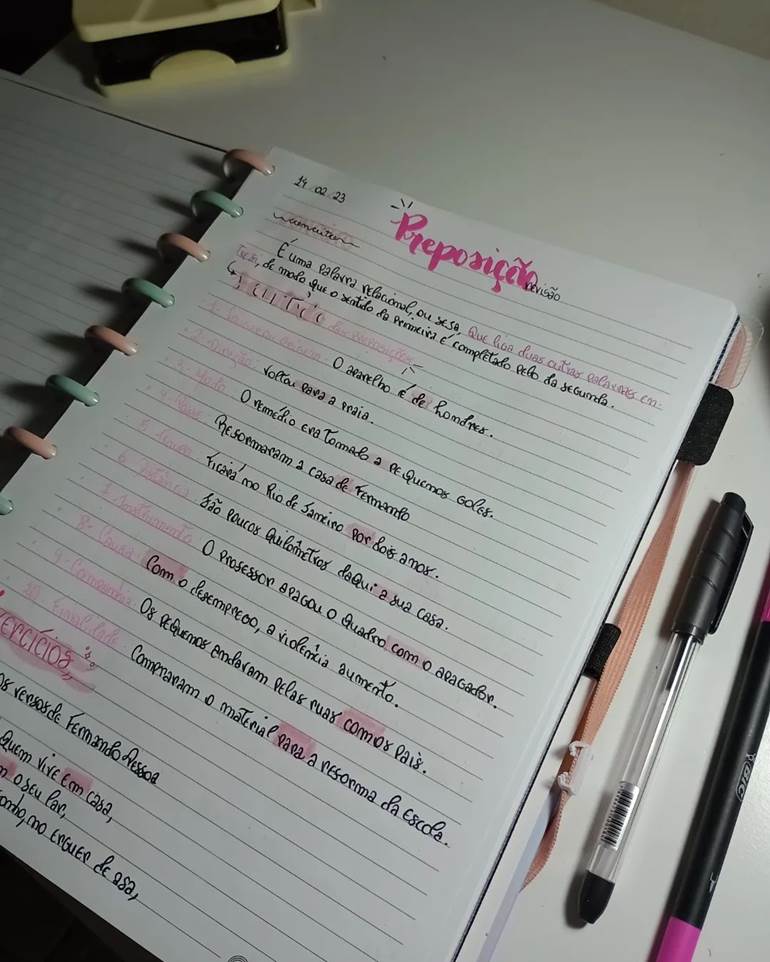 14 02 23
Preposição
revisão
É uma palavra relacional, ou seja, que liga duas outras palavras en-
de modo que o sentido da primeira é completado pelo da segunda.
O aparelho é de Londres.
Voltou para a praia.
3. Modo O remédio era tomado a pequenos goles.
Reformaram a casa de Fernando
Ficará no Rio de Janeiro por dois anos.
6. São poucos quilômetros daqui a sua casa.
7. Instrumento O professor apagou o quadro com o apagador.
8. Causa Com o desemprego, a violência aumento.
9. Companhia Os pequenos andaram pelas ruas com os pais.
10. Finalidade Compraram o material para a reforma da escola.
ercícios
versos de Fernando Pessoa
Quem vive em casa,
o seu lar,
no erguer de asa,
BIC